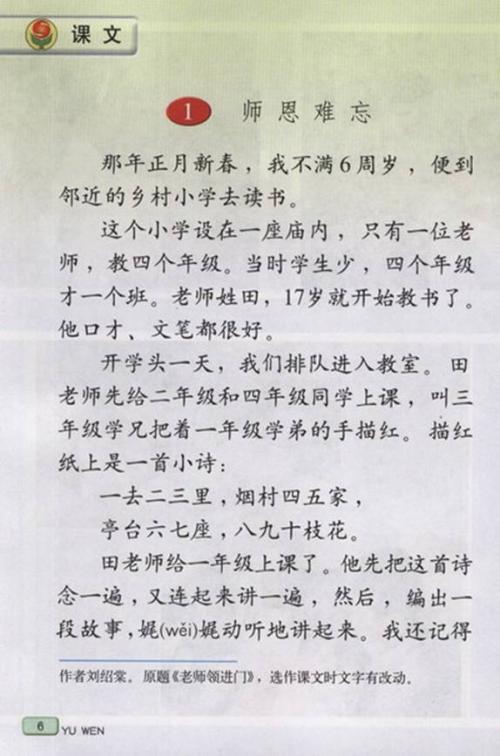 课文
1 师恩难忘
那年正月新春，我不满6周岁，便到
邻近的乡村小学去读书。
这个小学设在一座庙内，只有一位老
师，教四个年级。当时学生少，四个年级
才一个班。老师姓田，17岁就开始教书了。
他口才、文笔都很好。
开学头一天，我们排队进入教室。田
老师先给二年级和四年级同学上课，叫三
年级学兄把着一年级学弟的手描红。描红
纸上是一首小诗：
一去二三里，烟村四五家，
亭台六七座，八九十枝花。
田老师给一年级上课了。他先把这首诗
念一遍，又连起来讲一遍，然后，编出一
段故事，娓(wěi)娓动听地讲起来。我还记得
作者刘绍棠。原题《老师领进门》，选作课文时文字有改动。
6 YU WEN